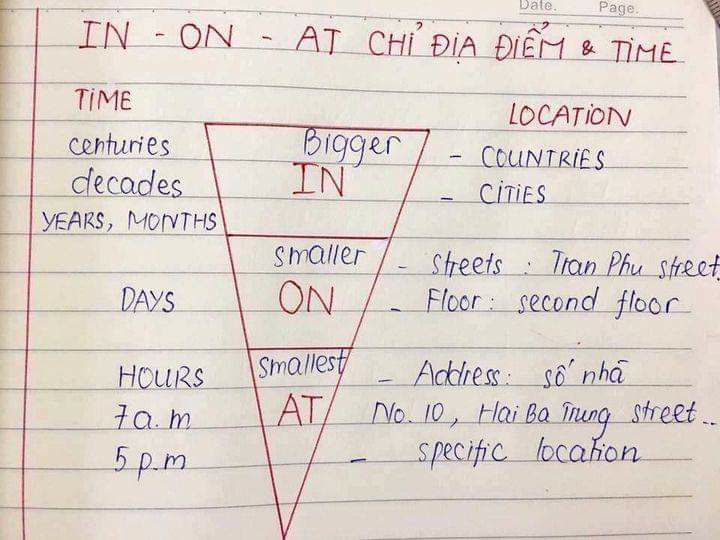 Date. Page.
IN - ON - AT CHỈ ĐỊA ĐIỂM & TIME
TIME
LOCATION
centuries
decades
YEARS, MONTHS
Bigger
IN
- COUNTRIES
- CITIES
DAYS
smaller
ON
- streets : Tran Phu street
- Floor : second floor
HOURS
7 a.m
5 p.m
smallest
AT
- Address : số nhà
No. 10, Hai Ba Trung street..
- specific location